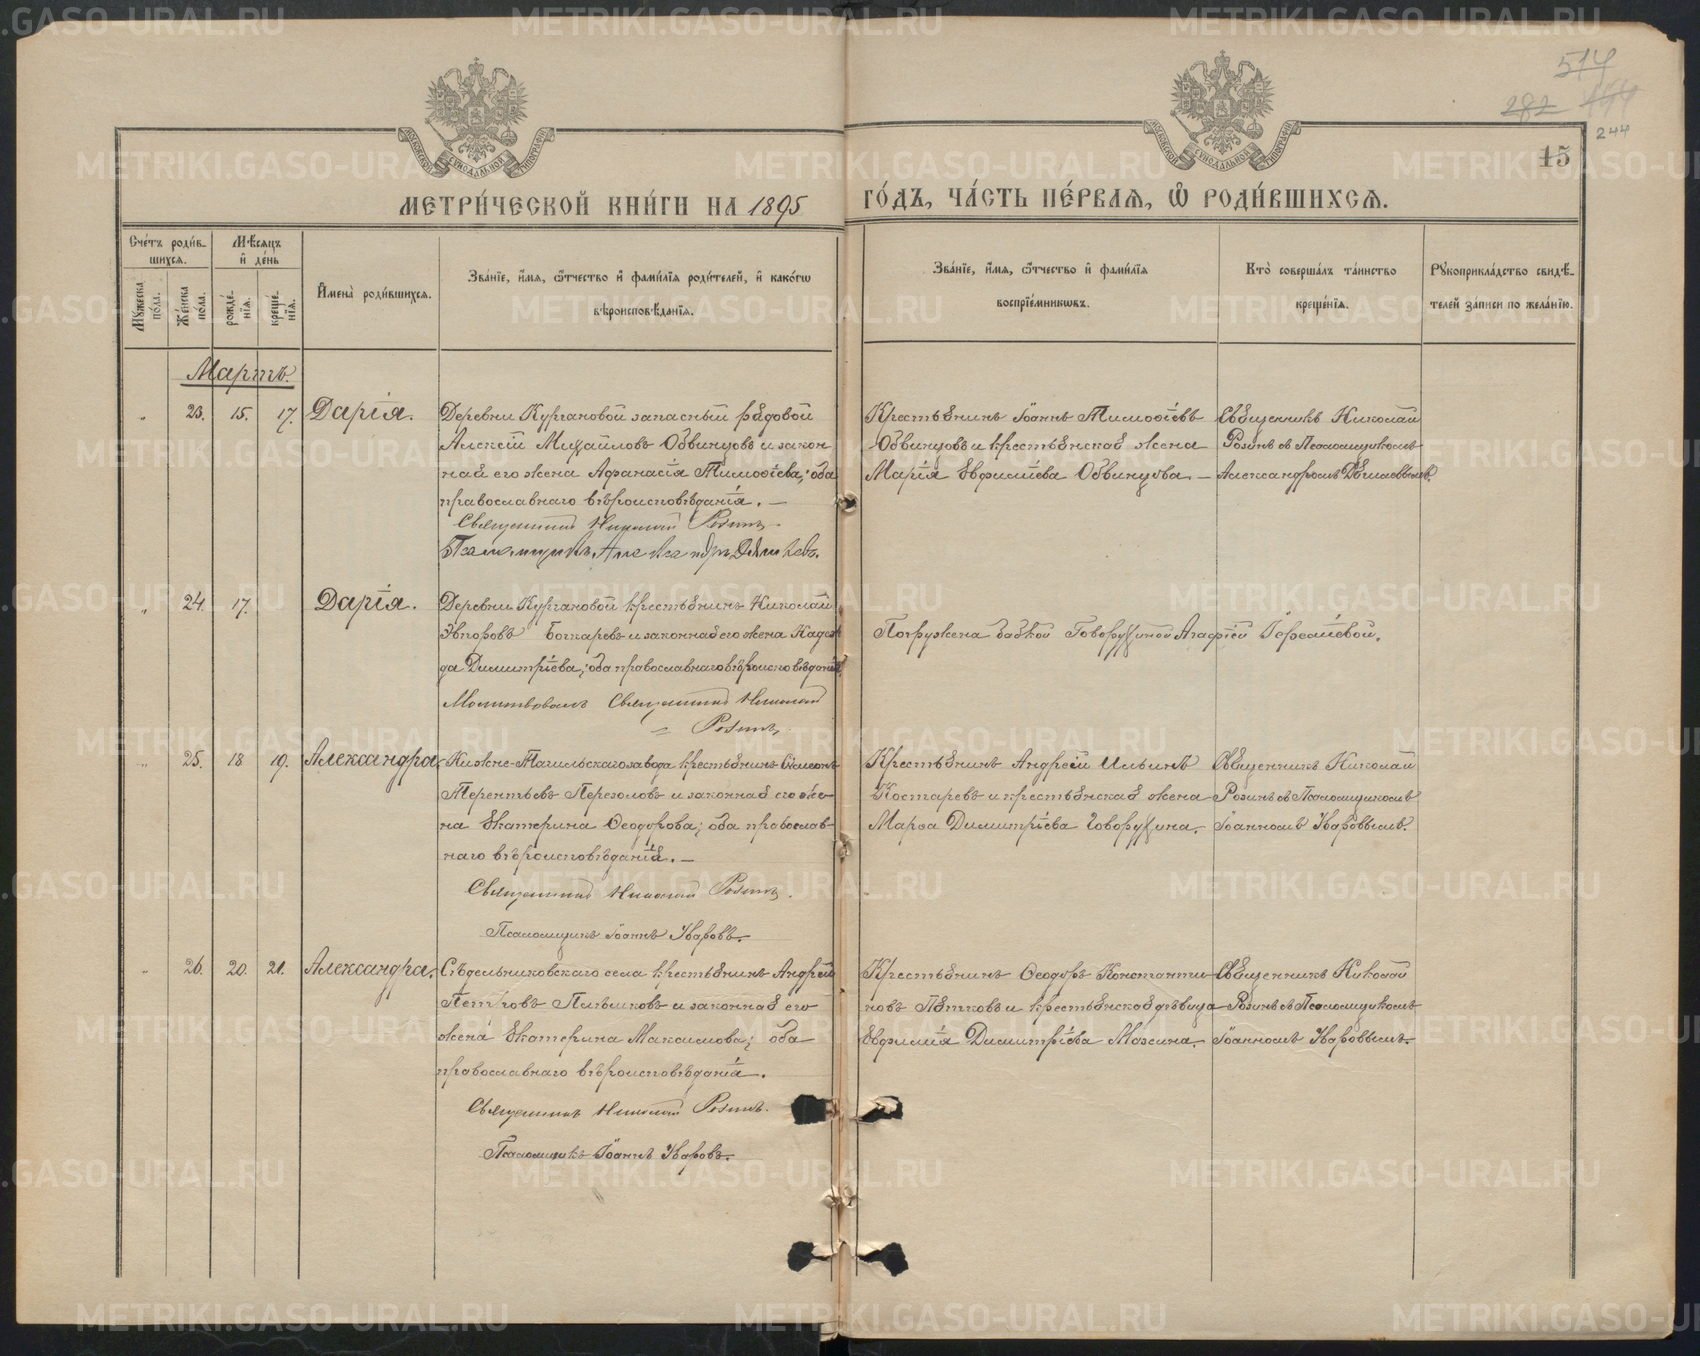 514
282 144
244
15
МЕТРИ́ЧЕСКОЙ КНИ́ГИ НА 1895 ГО́ДЪ, ЧА́СТЬ ПЕ́РВАѦ, Ѽ РОДИ́ВШИХСѦ.
МОСКОВСКОЙ СѴНОДАЛЬНОЙ ТИПОГРАФІИ
МОСКОВСКОЙ СѴНОДАЛЬНОЙ ТИПОГРАФІИ
Сче́тъ роди́в-
шихсѧ.
Мꙋ́жеска по́ла.
Же́нска по́ла.
Мѣ́сѧцъ
и҆ де́нь
рожде́-
нїѧ.
креще́-
нїѧ.
И҆мена̀ роди́вшихсѧ.
Зва́нїе, и҆́мѧ, ѻ҆́тчество и҆ фами́лїѧ роди́телей, и҆ како́гѡ
вѣроисповѣ́данїѧ.
Зва́нїе, и҆́мѧ, ѻ҆́тчество и҆ фами́лїѧ
воспрїе́мникѡвъ.
Кто̀ соверша́лъ та́инство
креще́нїѧ.
Рꙋкоприкла́дство свидѣ́-
телей за́писи по жела́нїю.
Мартъ.
„ 23. 15. 17. Дарія.
Деревни Кургановой запасный рядовой
Алексій Михаиловъ Обвинцовъ и закон
ная его жена Афанасія Тимофіева; оба
православнаго вѣроисповѣданія. —
Священникъ Николай Розинъ.
Псаломщикъ Александръ
Крестьянинъ Іоаннъ Тимофіевъ
Обвинцовъ и крестьянская жена
Марія Евфиміева Обвинцова. —
Священникъ Николай
Розинъ съ Псаломщикомъ
Александромъ
„ 24. 17. Дарія.
Деревни Кургановой крестьянинъ Николай
Егоровъ Бочкаревъ и законная его жена Надеж
да Димитріева; оба православнаго вѣроисповѣданія
Молитвовалъ Священникъ Николай
— Розинъ
Погружена бабкой Говорухиной Агафіей Іереміевой.
„ 25. 18 19. Александра.
Нижне-Тагильскаго завода крестьянинъ Симеонъ
Терентьевъ Перезоловъ и законная его же-
на Екатерина Ѳеодорова; оба православ-
наго вѣроисповѣданія. —
Священникъ Николай Розинъ.
Псаломщикъ Іоаннъ Уваровъ.
Крестьянинъ Андрей Ильинъ
Костаревъ и крестьянская жена
Марѳа Димитріева Говорухина. —
Священникъ Николай
Розинъ съ Псаломщикомъ
Іоанномъ Уваровымъ.
„ 26. 20. 21. Александра.
Сѣдельниковскаго села крестьянинъ Андрей
Петровъ Пѣшковъ и законная его
жена Екатерина Максимова; оба
православнаго вѣроисповѣданія.
Священникъ Николай Розинъ.
Псаломщикъ Іоаннъ Уваровъ.
Крестьянинъ Ѳеодоръ Константи
новъ Пятковъ и крестьянская дѣвица
Евфимія Димитріева Мохина.
Священникъ Николай
Розинъ съ Псаломщикомъ
Іоанномъ Уваровымъ.
METRIKI.GASO-URAL.RU